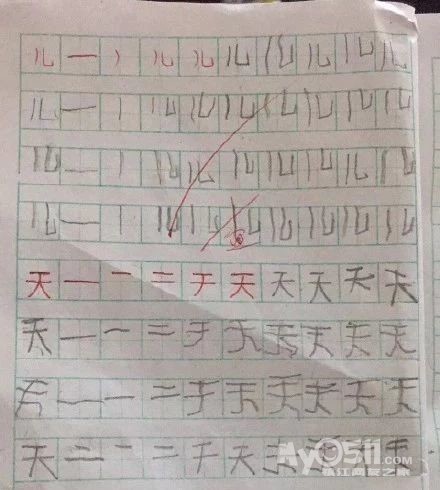 儿 一 丿 儿 儿 儿 儿 儿 儿 儿
儿 一 丿 儿 儿 儿 儿 儿 儿 儿
儿 一 丿 儿 儿 儿 儿 儿 儿 儿
儿 一 丿 儿 儿 儿 儿 儿 儿 儿
天 一 一 二 于 天 天 天 天 天
天 一 一 二 于 天 天 天 天 天
天 一 一 二 于 天 天 天 天 天
天 二 一 二 于 天 天 天 天 天
My0511.com
镇江网友之家